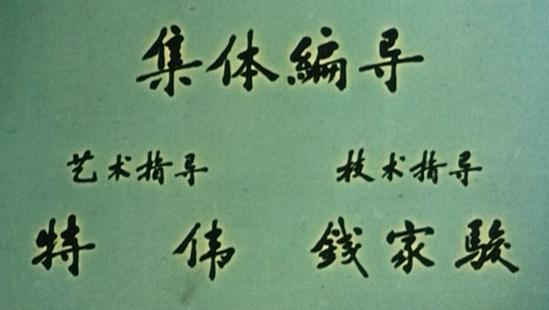 集体编导
艺术指导 技术指导
特伟 錢家駿